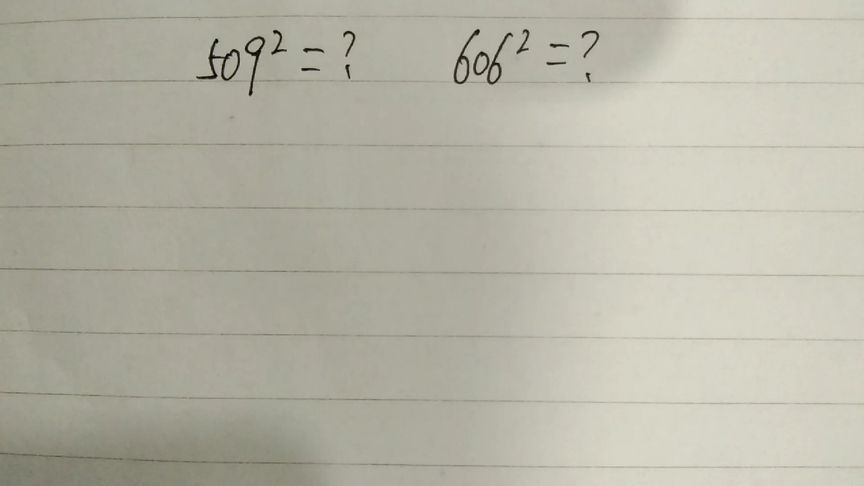 509² = ? 606² = ?